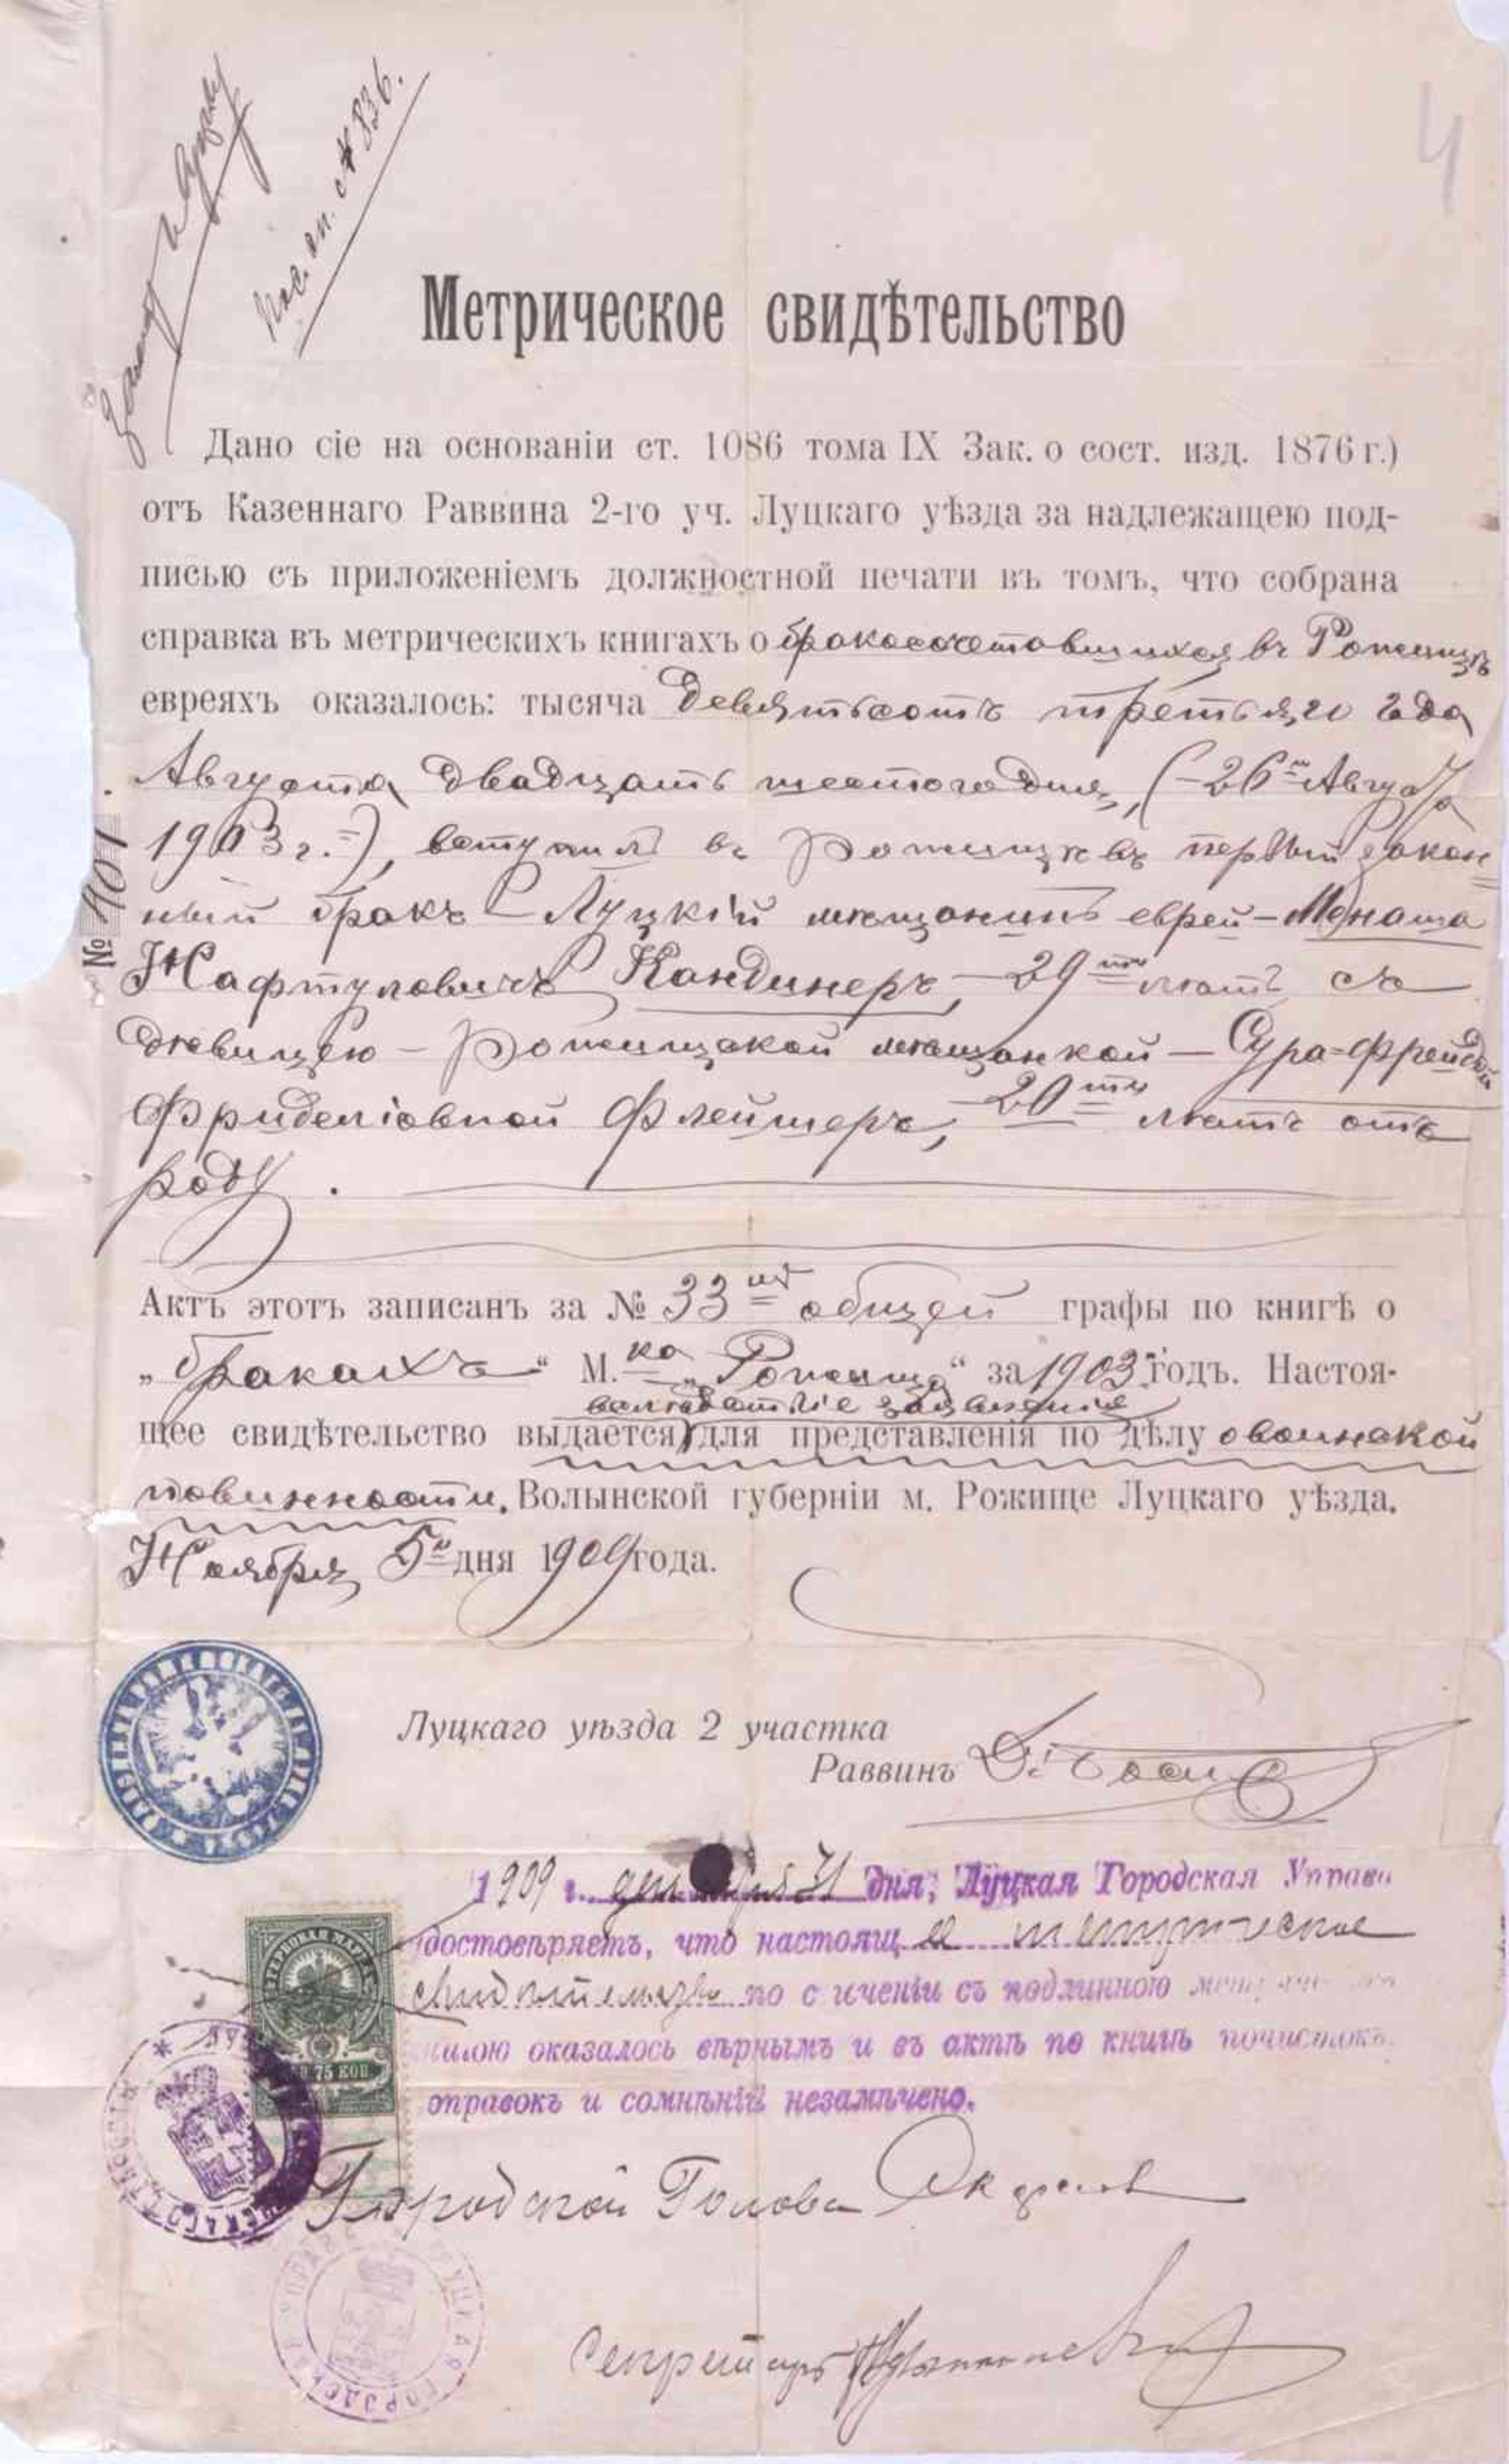 № 836.
4
Метрическое свидѣтельство
Дано сіе на основаніи ст. 1086 тома IX Зак. о сост. изд. 1876 г.)
отъ Казеннаго Раввина 2-го уч. Луцкаго уѣзда за надлежащею под-
писью съ приложеніемъ должностной печати въ томъ, что собрана
справка въ метрическихъ книгахъ о бракосочетавшихся въ Рожищѣ
евреяхъ оказалось: тысяча девятьсотъ третьяго года
Августа двадцать шестого дня, (-26го Августа
1903 г.=), вступилъ въ Рожищѣ въ первый закон=
№ 401
ный бракъ - Луцкій мѣщанинъ еврей - Монаша
Нафтуловичъ Кандинеръ, - 29ти лѣтъ съ
дѣвицею - Рожищской мѣщанкой - Сура=Фрейдой
Фриделіовной Флейшеръ, - 20ти лѣтъ отъ
роду.
Актъ этотъ записанъ за № 33мъ общей графы по книгѣ о
„бракахъ“ М.ка „Рожища“ за 1903 годъ. Настоя-
вслѣдствіе заявленія
щее свидѣтельство выдается для представленія по дѣлу о воинской
повинности. Волынской губерніи м. Рожище Луцкаго уѣзда.
Ноября 5го дня 1909 года.
Луцкаго уѣзда 2 участка
Раввинъ
1909 г. дня, Луцкая Городская Управа
достовѣряетъ, что настоящее метрическое
свидѣтельство по сличеніи съ подлинною
книгою оказалось вѣрнымъ и въ актѣ по книгѣ почистокъ
оправокъ и сомнѣній незамѣчено.
ГЕРБОВАЯ МАРКА
75 КОП
Городской Голова
Секретарь